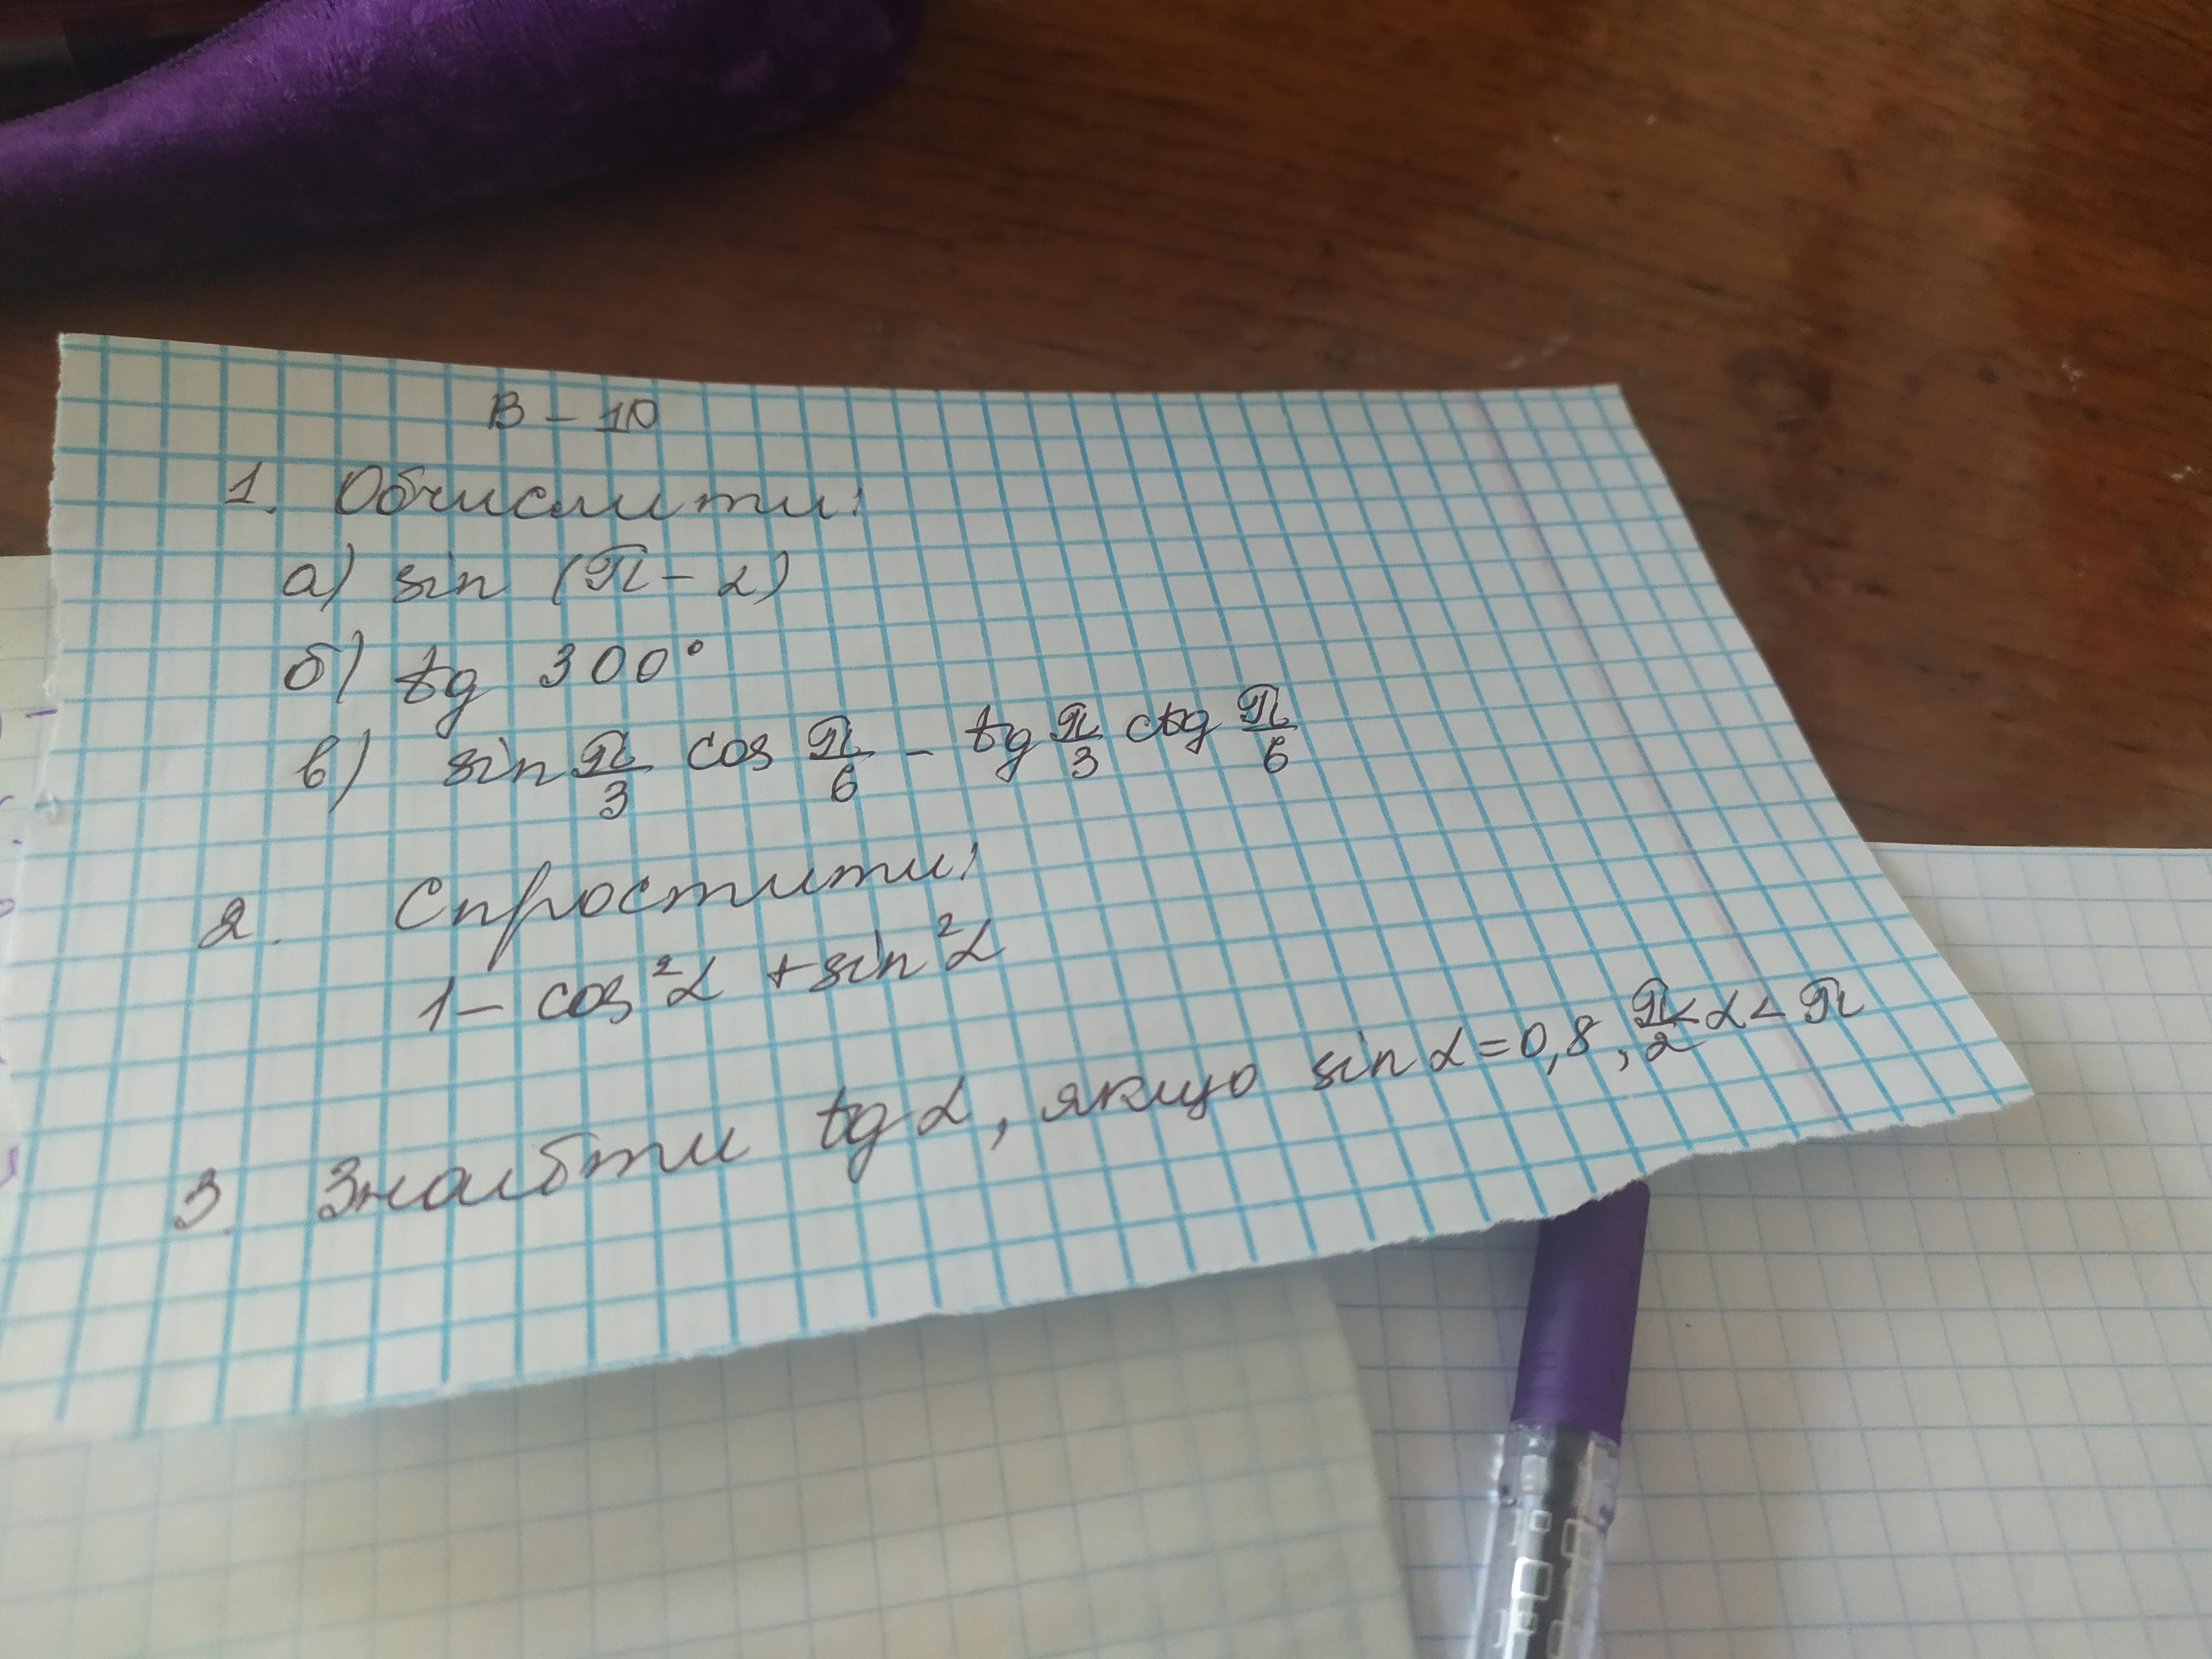 В - 10
1. Обчислити:
а) sin (π - α)
б) tg 300°
в) sin π/3 cos π/6 - tg π/3 ctg π/6
2. Спростити:
1 - cos²α + sin²α
3. Знайти tg α, якщо sin α = 0,8, π/2 < α < π